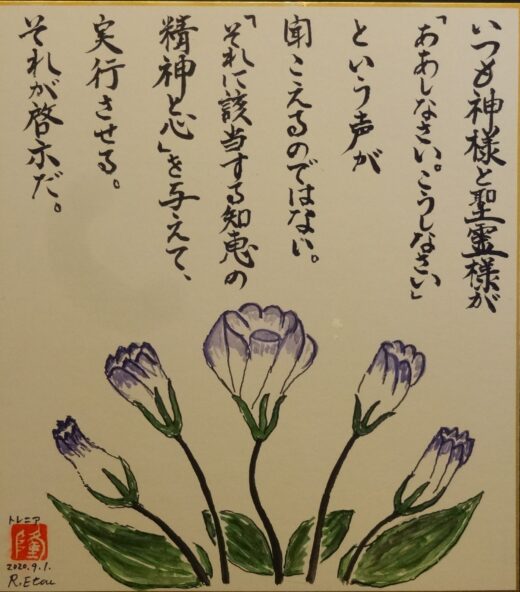 いつも神様と聖霊様が
「ああしなさい。こうしなさい」
という声が
聞こえるのではない。
「それに該当する知恵の
精神と心」を与えて、
実行させる。
それが啓示だ。
トレニア
隆
2020.9.1.
R.Etou